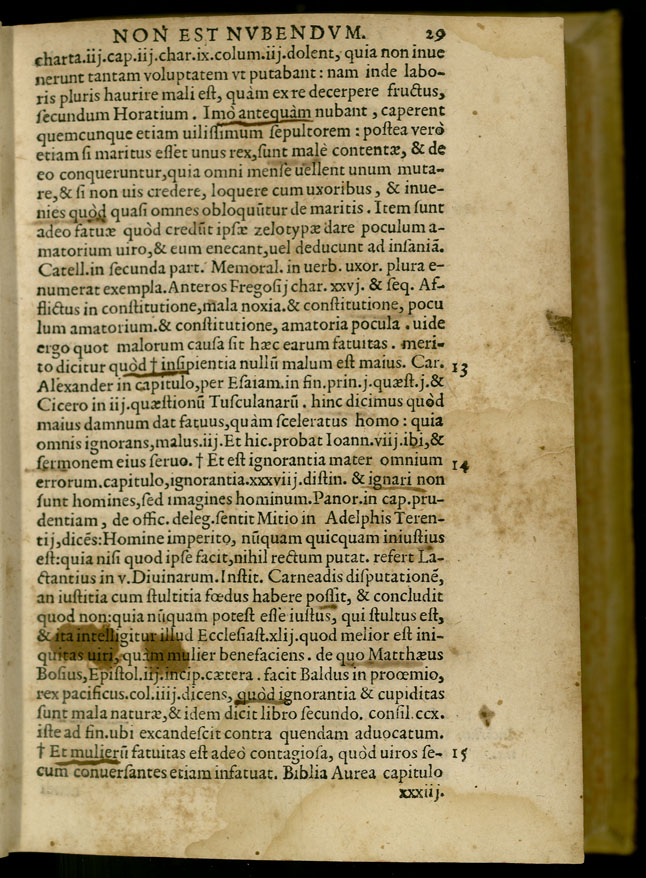 NON EST NVBENDVM. 29
charta.iij.cap.iij.char.ix.colum.iij.dolent, quia non inue
nerunt tantam voluptatem vt putabant: nam inde labo-
ris pluris haurire mali eſt, quàm ex re decerpere fructus,
ſecundum Horatium. Imò antequàm nubant, caperent
quemcunque etiam uiliſſimum ſepultorem: poſtea verò
etiam ſi maritus eſſet unus rex, ſunt malè contentæ, & de
eo conqueruntur, quia omni menſe uellent unum muta-
re, & ſi non uis credere, loquere cum uxoribus, & inue-
nies quòd quaſi omnes obloquūtur de maritis. Item ſunt
adeo fatuæ quòd credūt ipſæ zelotypæ dare poculum a-
matorium uiro, & eum enecant, uel deducunt ad inſaniā.
Catell. in ſecunda part. Memoral. in uerb. uxor. plura e-
numerat exempla. Anteros Fregoſij char. xxvj. & ſeq. Af-
flictus in conſtitutione, mala noxia. & conſtitutione, pocu
lum amatorium. & conſtitutione, amatoria pocula. uide
ergo quot malorum cauſa ſit hæc earum fatuitas. meri-
to dicitur quòd † inſipientia nullū malum eſt maius. Car. 13
Alexander in capitulo, per Eſaiam. in fin. prin. j. quæſt. j. &
Cicero in iij. quæſtionū Tuſculanarū. hinc dicimus quòd
maius damnum dat fatuus, quàm ſceleratus homo: quia
omnis ignorans, malus. iij. Et hic. probat Ioann. viij. ibi, &
ſermonem eius ſeruo. † Et eſt ignorantia mater omnium 14
errorum. capitulo, ignorantia. xxxviij. diſtin. & ignari non
ſunt homines, ſed imagines hominum. Panor. in cap. pru-
dentiam, de offic. deleg. ſentit Mitio in Adelphis Teren-
tij, dicēs: Homine imperito, nūquam quicquam iniuſtius
eſt: quia niſi quod ipſe facit, nihil rectum putat. refert La-
ctantius in v. Diuinarum. Inſtit. Carneadis diſputationē,
an iuſtitia cum ſtultitia fœdus habere poſſit, & concludit
quod non: quia nūquam poteſt eſſe iuſtus, qui ſtultus eſt,
& ita intelligitur illud Eccleſiaſt. xlij. quod melior eſt ini-
quitas uiri, quàm mulier benefaciens. de quo Matthæus
Boſius, Epiſtol. iij. incip. cætera. facit Baldus in prooemio,
rex pacificus. col. iiij. dicens, quòd ignorantia & cupiditas
ſunt mala naturæ, & idem dicit libro ſecundo. conſil. ccx.
iſte ad fin. ubi excandeſcit contra quendam aduocatum.
† Et mulierū fatuitas eſt adeò contagioſa, quòd uiros ſe- 15
cum conuerſantes etiam infatuat. Biblia Aurea capitulo
xxxiij.